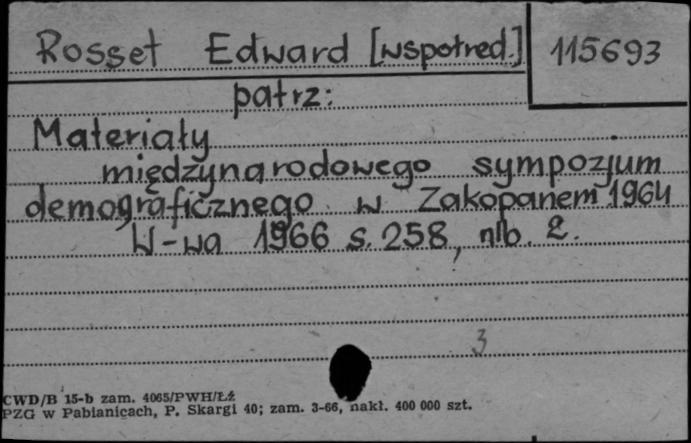 Rosset Edward [współred.] 115693
patrz:
Materiały
międzynarodowego sympozjum
demograficznego w Zakopanem 1964
W-wa 1966 s. 258, nlb. 2.
3
CWD/B 15-b zam. 4065/PWH/Łź
PZG w Pabianicach, P. Skargi 40; zam. 3-66, nakł. 400 000 szt.